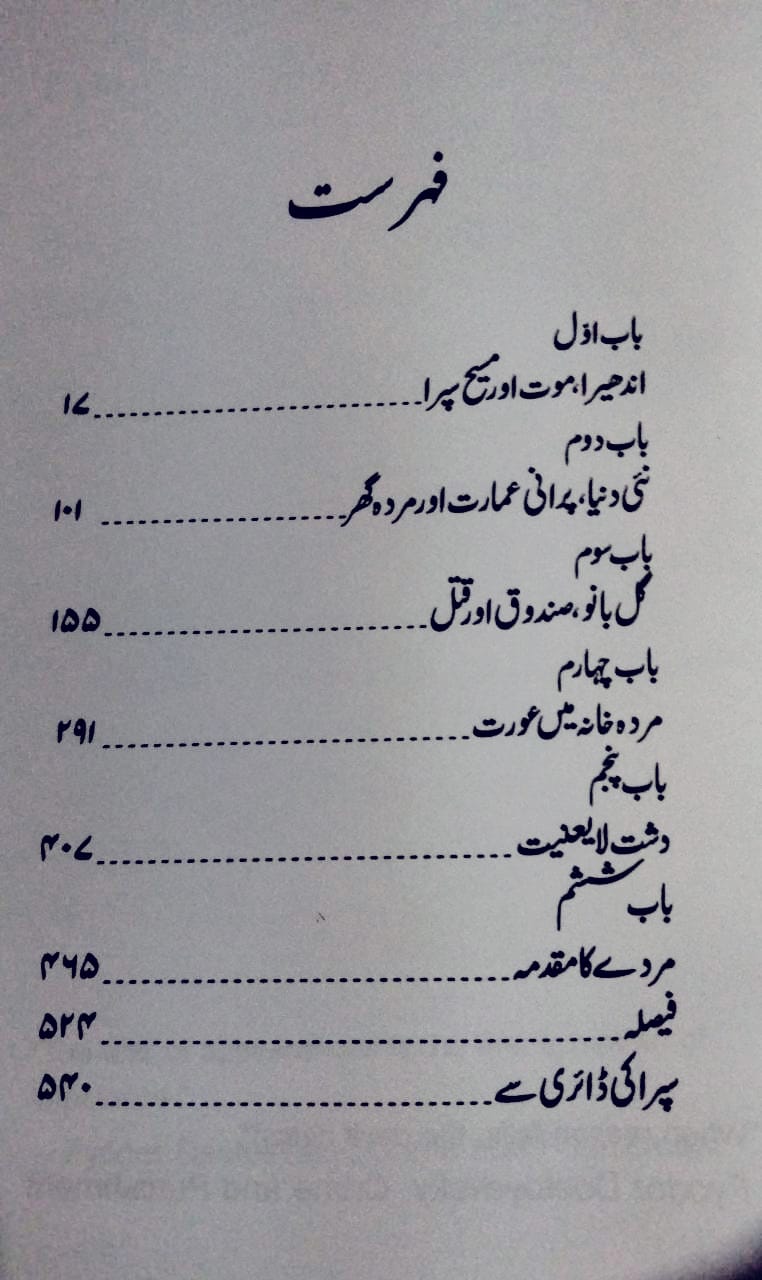 فہرست
باب اوّل
اندھیرا، موت اور مسیح سپرا ۱۷
باب دوم
نئی دنیا، پرانی عمارت اور مردہ گھر ۱۰۱
باب سوم
گل بانو، صندوق اور قتل ۱۵۵
باب چہارم
مردہ خانہ میں عورت ۲۹۱
باب پنجم
دشت لایعنیت ۴۰۷
باب ششم
مردے کا مقدمہ ۴۶۵
فیصلہ ۵۲۴
سپرا کی ڈائری سے ۵۴۰